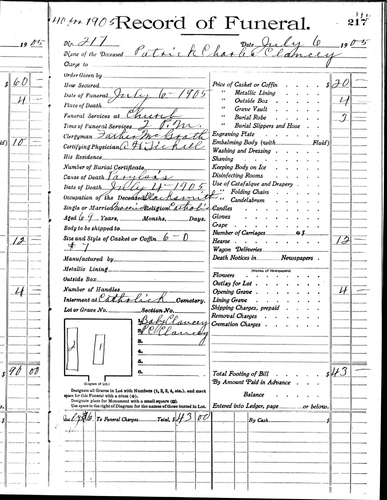 1905 Record of Funeral.
217
1905
No. 217 Date July 6 1905
Name of the Deceased Patrick Charles Clancey
Charge to
Order Given by
How Secured
Date of Funeral July 6 - 1905
Place of Death
Funeral Services at Church
Time of Funeral Services 2 P.M.
Clergyman Father
Certifying Physician
His Residence
Number of Burial Certificate
Cause of Death
Date of Death July 4 - 1905
Occupation of the Deceased Blacksmith
Single or Married Religion Catholic
Aged 64 Years, Months, Days.
Body to be shipped to
Size and Style of Casket or Coffin 6-0
#7
Manufactured by
Metallic Lining
Outside Box
Number of Handles
Interment at Catholick Cemetery.
Lot or Grave No. Section No.
1. Baby Clancey
2. P.C. Clancey
3.
4.
5.
6.
2 1
(Diagram of Lot.)
Designate all Graves in Lot with Numbers (1, 2, 3, 4, etc.), and mark
space for this Funeral with a cross (+).
Designate place for Monument with a small square (□).
Use space to right of Diagram for the names of those buried in Lot.
To Funeral Charges Total, $43 00
Price of Casket or Coffin $20
" Metallic Lining
" Outside Box 4
" Grave Vault
" Burial Robe 3
" Burial Slippers and Hose
Engraving Plate
Embalming Body (with Fluid)
Washing and Dressing
Shaving
Keeping Body on Ice
Disinfecting Rooms
Use of Catafalque and Drapery
" Folding Chairs
" Candelabrum
Candles
Gloves
Crape
Number of Carriages @ $
Hearse 12
Wagon Deliveries
Death Notices in Newspapers
(Names of Newspapers)
Flowers
Outlay for Lot
Opening Grave 4
Lining Grave
Shipping Charges, prepaid
Removal Charges
Cremation Charges
Total Footing of Bill $43
By Amount Paid in Advance
Balance
Entered into Ledger, page or below.
By Cash $
$60
4
10
12
4
$90 00